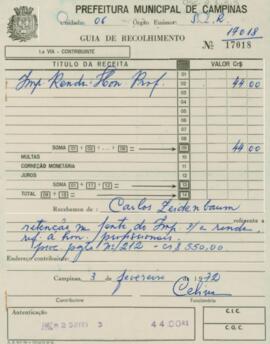 PREFEITURA MUNICIPAL DE CAMPINAS
Unidade: 06 Órgão Emissor: S.I.R.
17018
GUIA DE RECOLHIMENTO
1.a VIA - CONTRIBUINTE
Nº 17018
TÍTULO DA RECEITA VALOR Cr$
Imp. Renda Hon Prof. 01 44.00
02
03
04
05
06
07
08
SOMA 01 + 02 + ... + 08 09 44.00
MULTAS 10
CORREÇÃO MONETÁRIA 11
JUROS 12
SOMA 13
TOTAL 14
Recebemos de: Carlos Zeidenbaum
referente a
retenção na fonte do Imp s/a renda,
ref. à hon. profissionais.
proc pgto nº/212 - Cr$ 550,00
Endereço contribuinte:
Campinas, 3 de fevereiro de 1972
Contribuinte Funcionário
Autenticação C.I.C.
44.00
C.G.C.